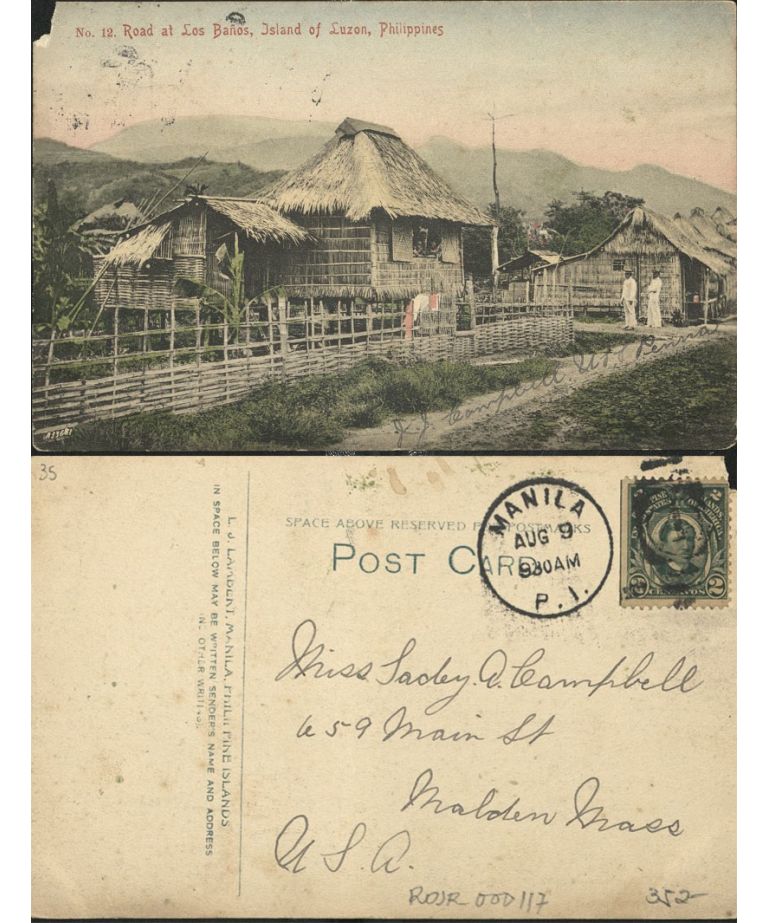 No. 12. Road at Los Baños, Island of Luzon, Philippines
J. J. Campbell U.S.S. Penna
A11681
35
L. J. LAMBERT, MANILA, PHILIPPINE ISLANDS
IN SPACE BELOW MAY BE WRITTEN SENDER'S NAME AND ADDRESS
(NO OTHER WRITING).
SPACE ABOVE RESERVED POSTMARKS
POST CARD
MANILA
AUG 9
930AM
P. I.
2 CENTAVOS 2
Miss Sadey. A. Campbell
659 Main St
Malden Mass
U. S. A.
ROJR 00D117
352-